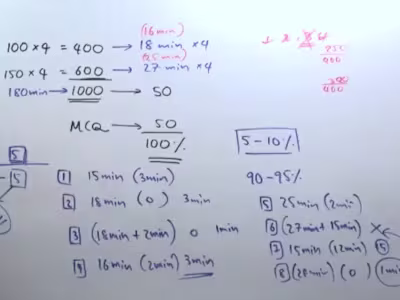 (16 min)
100 × 4 = 400 → 18 min × 4
(25 min)
150 × 4 = 600 → 27 min × 4
180min → 1000 → 50
MCQ → 50
100%
5-10%
90-95%
5
5
1 15min (3min)
2 18min (0) 3min
3 (18min + 2min) 0 1min
4 16min (2min) 3min
5 25min (2min)
6 (27min + 15min) ×
7 15min (12min) 5
8 (20min) (0) 1min